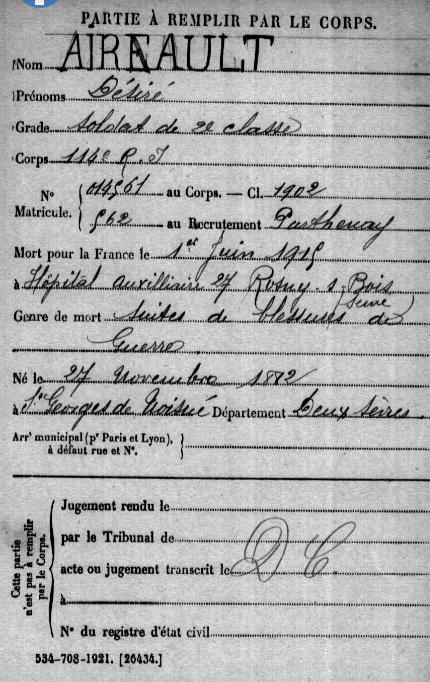 PARTIE À REMPLIR PAR LE CORPS.
Nom AIREAULT
Prénoms Désiré
Grade Soldat de 2e classe
Corps 114e R. I
N° Matricule. { 014561 au Corps. — Cl. 1902
562 au Recrutement Parthenay
Mort pour la France le 1er Juin 1915
à Hôpital auxilliaire 27 Rosny s Bois
(Seine)
Genre de mort suites de blessures de
Guerre
Né le 27 Novembre 1882
à St Georges de Noisné Département Deux Sèvres
Arrt municipal (pr Paris et Lyon),
à défaut rue et N°.
Cette partie n'est pas à remplir par le Corps.
Jugement rendu le
par le Tribunal de
acte ou jugement transcrit le D C.
à
N° du registre d'état civil
534-708-1921. [26434.]